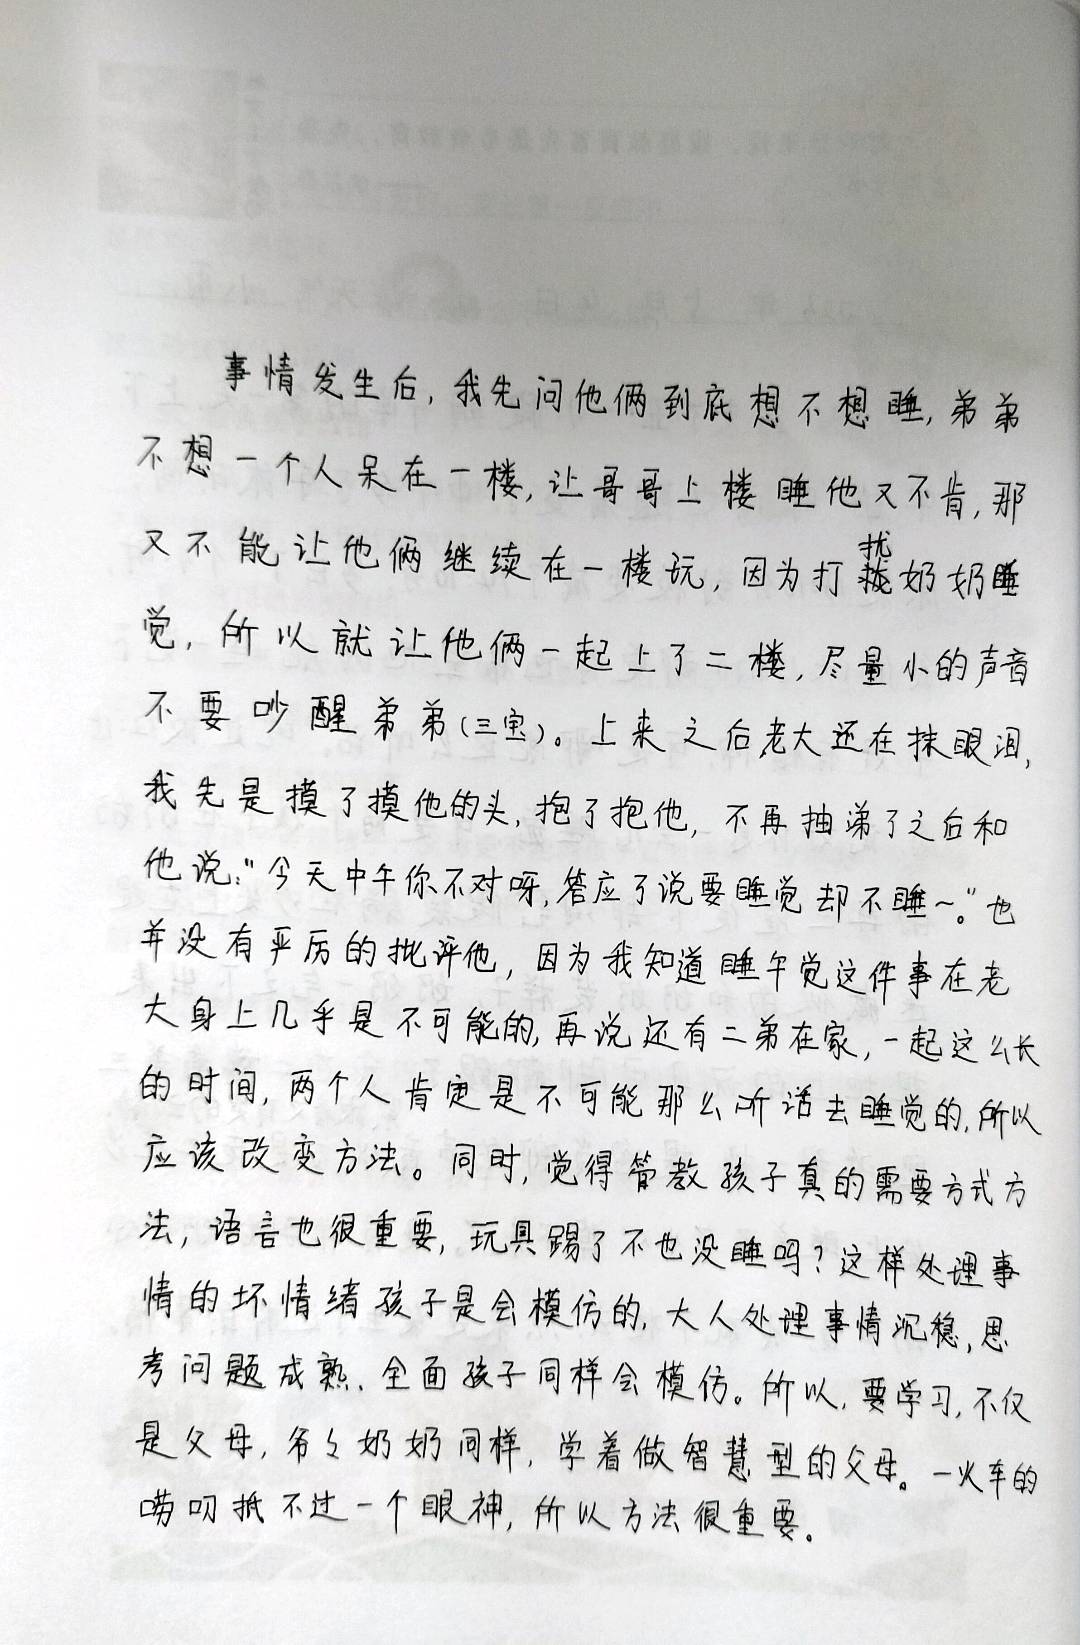 事情发生后，我先问他俩到底想不想睡，弟弟
不想一个人呆在一楼，让哥哥上楼睡他又不肯，那
又不能让他俩继续在一楼玩，因为打扰奶奶睡
觉，所以就让他俩一起上了二楼，尽量小的声音
不要吵醒弟弟(三宝)。上来之后老大还在抹眼泪，
我先是摸了摸他的头，抱了抱他，不再抽涕了之后和
他说："今天中午你不对呀，答应了说要睡觉却不睡～。"也
并没有严厉的批评他，因为我知道睡午觉这件事在老
大身上几乎是不可能的，再说还有二弟在家，一起这么长
的时间，两个人肯定是不可能那么听话去睡觉的，所以
应该改变方法。同时，觉得管教孩子真的需要方式方
法，语言也很重要，玩具踢了不也没睡吗？这样处理事
情的坏情绪孩子是会模仿的，大人处理事情沉稳，思
考问题成熟、全面孩子同样会模仿。所以，要学习，不仅
是父母，爷々奶奶同样，学着做智慧型的父母。一火车的
唠叨抵不过一个眼神，所以方法很重要。